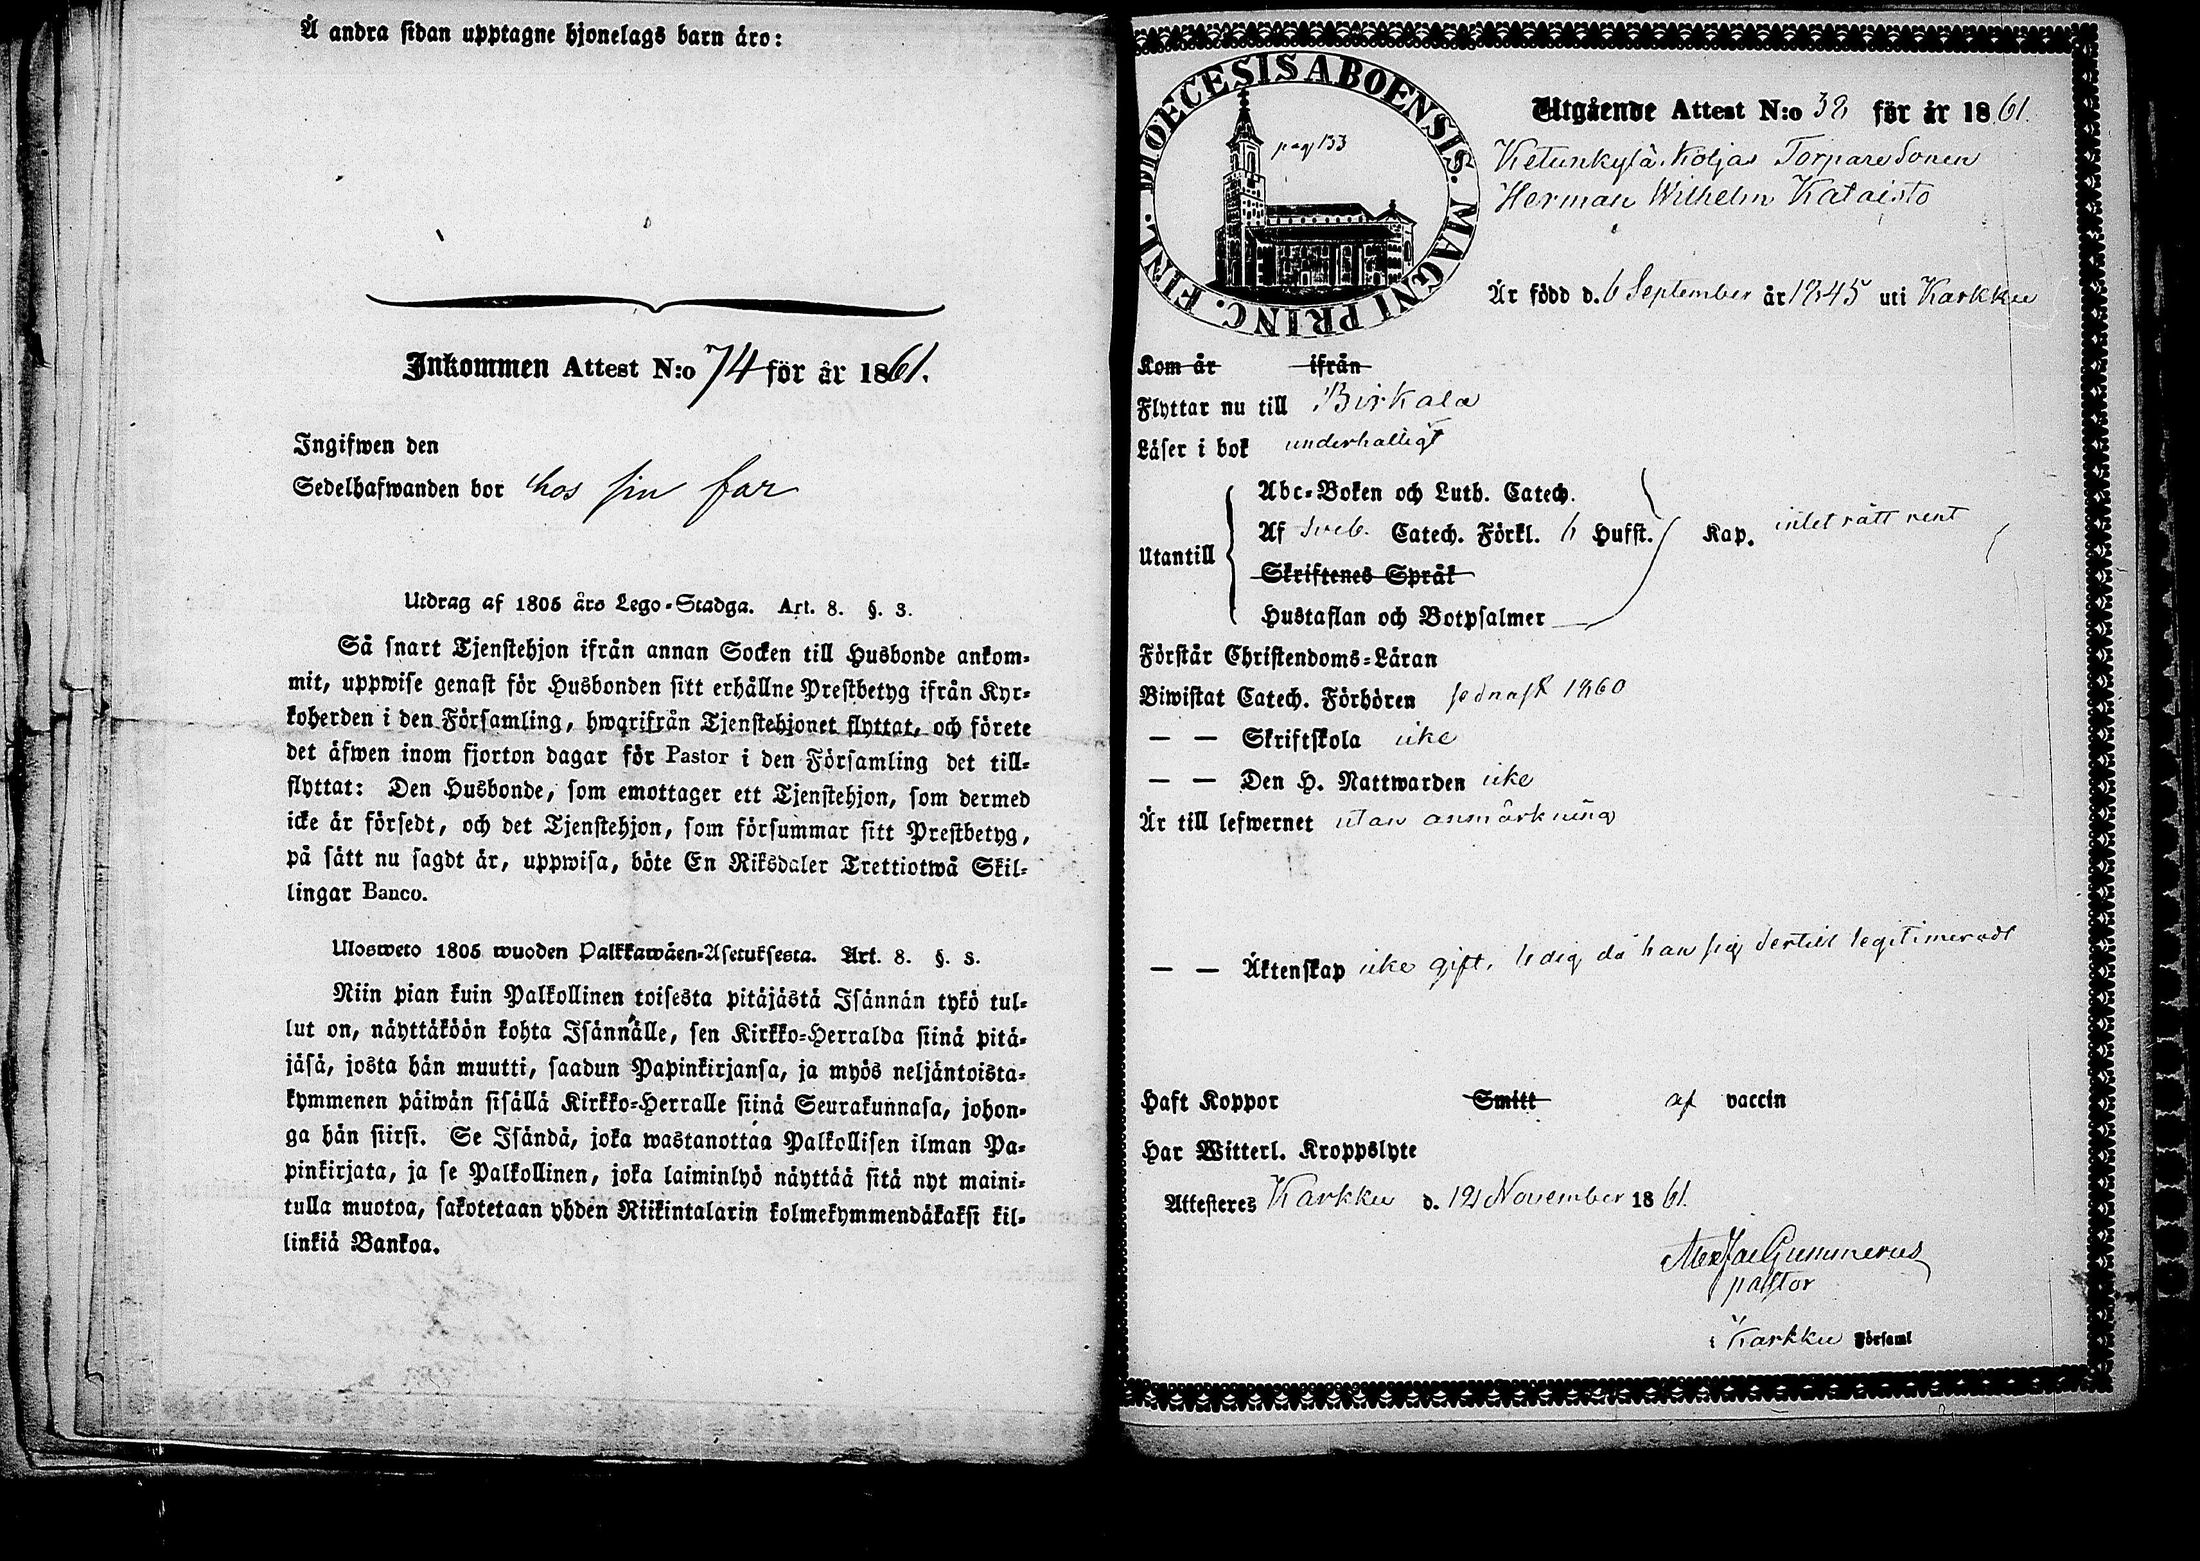 Å andra sidan upptagne hjonelags barn äro:
Inkommen Attest N:o 74 för år 1861.
Ingifwen den
Sedelhafwanden bor hos sin far
Utdrag af 1805 års Lego-Stadga. Art. 8. §. 3.
Så snart Tjenstehjon ifrån annan Socken till Husbonde ankom-
mit, uppwise genast för Husbonden sitt erhållne Prestbetyg ifrån Kyr-
koherden i den Församling, hwarifrån Tjenstehjonet flyttat, och förete
det äfwen inom fjorton dagar för Pastor i den Församling det till-
flyttat: Den Husbonde, som emottager ett Tjenstehjon, som dermed
icke är försedt, och det Tjenstehjon, som försummar sitt Prestbetyg,
på sätt nu sagdt är, uppwisa, böte En Riksdaler Trettiotwå Skil-
lingar Banco.
Ulosweto 1805 wuoden Palkkawäen-Asetuksesta. Art. 8. §. 3.
Niin pian kuin Palkollinen toisesta pitäjästä Isännän tykö tul-
lut on, näyttäköön kohta Isännälle, sen Kirkko-Herralda siinä pitä-
jäsä, josta hän muutti, saadun Papinkirjansa, ja myös neljäntoista-
kymmenen päiwän sisällä Kirkko-Herralle siinä Seurakunnasa, johon-
ga hän siirsi. Se Isändä, joka wastanottaa Palkollisen ilman Pa-
pinkirjata, ja se Palkollinen, joka laiminlyö näyttää sitä nyt maini-
tulla muotoa, sakotetaan yhden Riikintalarin kolmekymmendäkaksi kil-
linkiä Bankoa.
DIOECESIS ABOENSIS. MAGNI PRINC. FINL.
pag 133
Utgående Attest N:o 38 för år 1861.
Ketunkylä Koljas Torpare Sonen
Herman Wilhelm Kataisto
Är född d. 6 September år 1845 uti Karkku
Kom år ifrån
Flyttar nu till Birkala
Läser i bok underhaltigt
Abc-Boken och Luth. Catech.
Utantill Af Sveb. Catech. Förkl. 6 Hufst. Kap. intet rätt rent
Skriftenes Språk
Hustaflan och Botpsalmer
Förstår Christendoms-Läran
Biwistat Catech. Förhören sednast 1860
— — Skriftskola icke
— — Den H. Nattwarden icke
Är till lefwernet utan anmärkning
— — Äktenskap icke gift, ledig då han sig dertill legitimeradt
Haft Koppor Smitt af vaccin
Har Witterl. Kroppslyte
Attesteres Karkku d. 12 November 1861.
Gummerus
pastor
i Karkku Församl